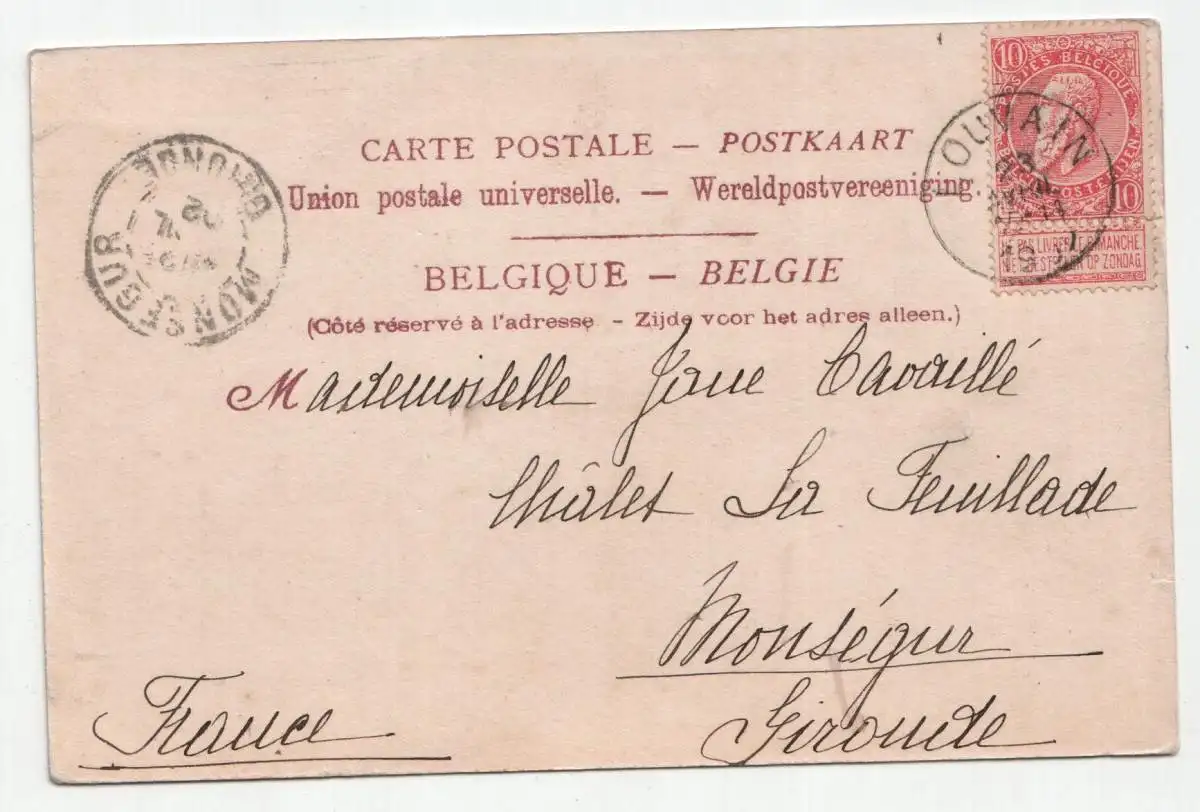 10
POSTES BELGIQUE
10
NE PAS LIVRER LE DIMANCHE
NIET BESTELLEN OP ZONDAG
LOUVAIN
CARTE POSTALE — POSTKAART
Union postale universelle. — Wereldpostvereeniging.
BELGIQUE — BELGIE
(Côté réservé à l'adresse - Zijde voor het adres alleen.)
MONSEGUR
GIRONDE
Mademoiselle Jane Cavaillé
Châlet La Feuillade
Monségur
Gironde
France